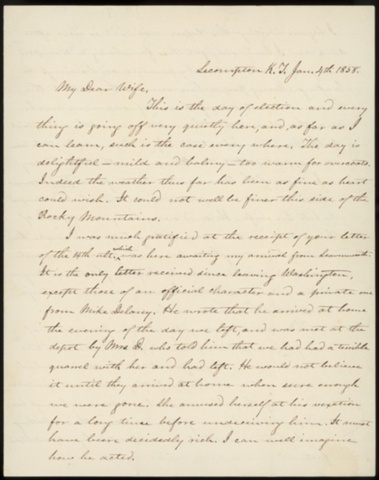 Lecompton K.T. Jan. 4th 1858.
My Dear Wife,
This is the day of election and every
thing is going off very quietly here, and, as far as I
can learn, such is the case every where. The day is
delightful – mild and balmy – too warm for overcoats.
Indeed the weather thus far has been as fine as heart
could wish. It could not well be finer this side of the
Rocky Mountains.
I was much gratified at the receipt of your letter
of the ult. which was here awaiting my arrival from Leavenworth.
It is the only letter received since leaving Washington,
except those of an official character and a private one
from Mike Delany. He wrote that he arrived at home
the evening of the day we left, and was met at the
depot by Mrs D. who told him that we had had a terrible
quarrel with her and had left. He would not believe
it until they arrived at home when sure enough
we were gone. She amused herself at his vexation
for a long time before undeceiving him. It must
have been decidedly rich. I can well imagine
how he acted.